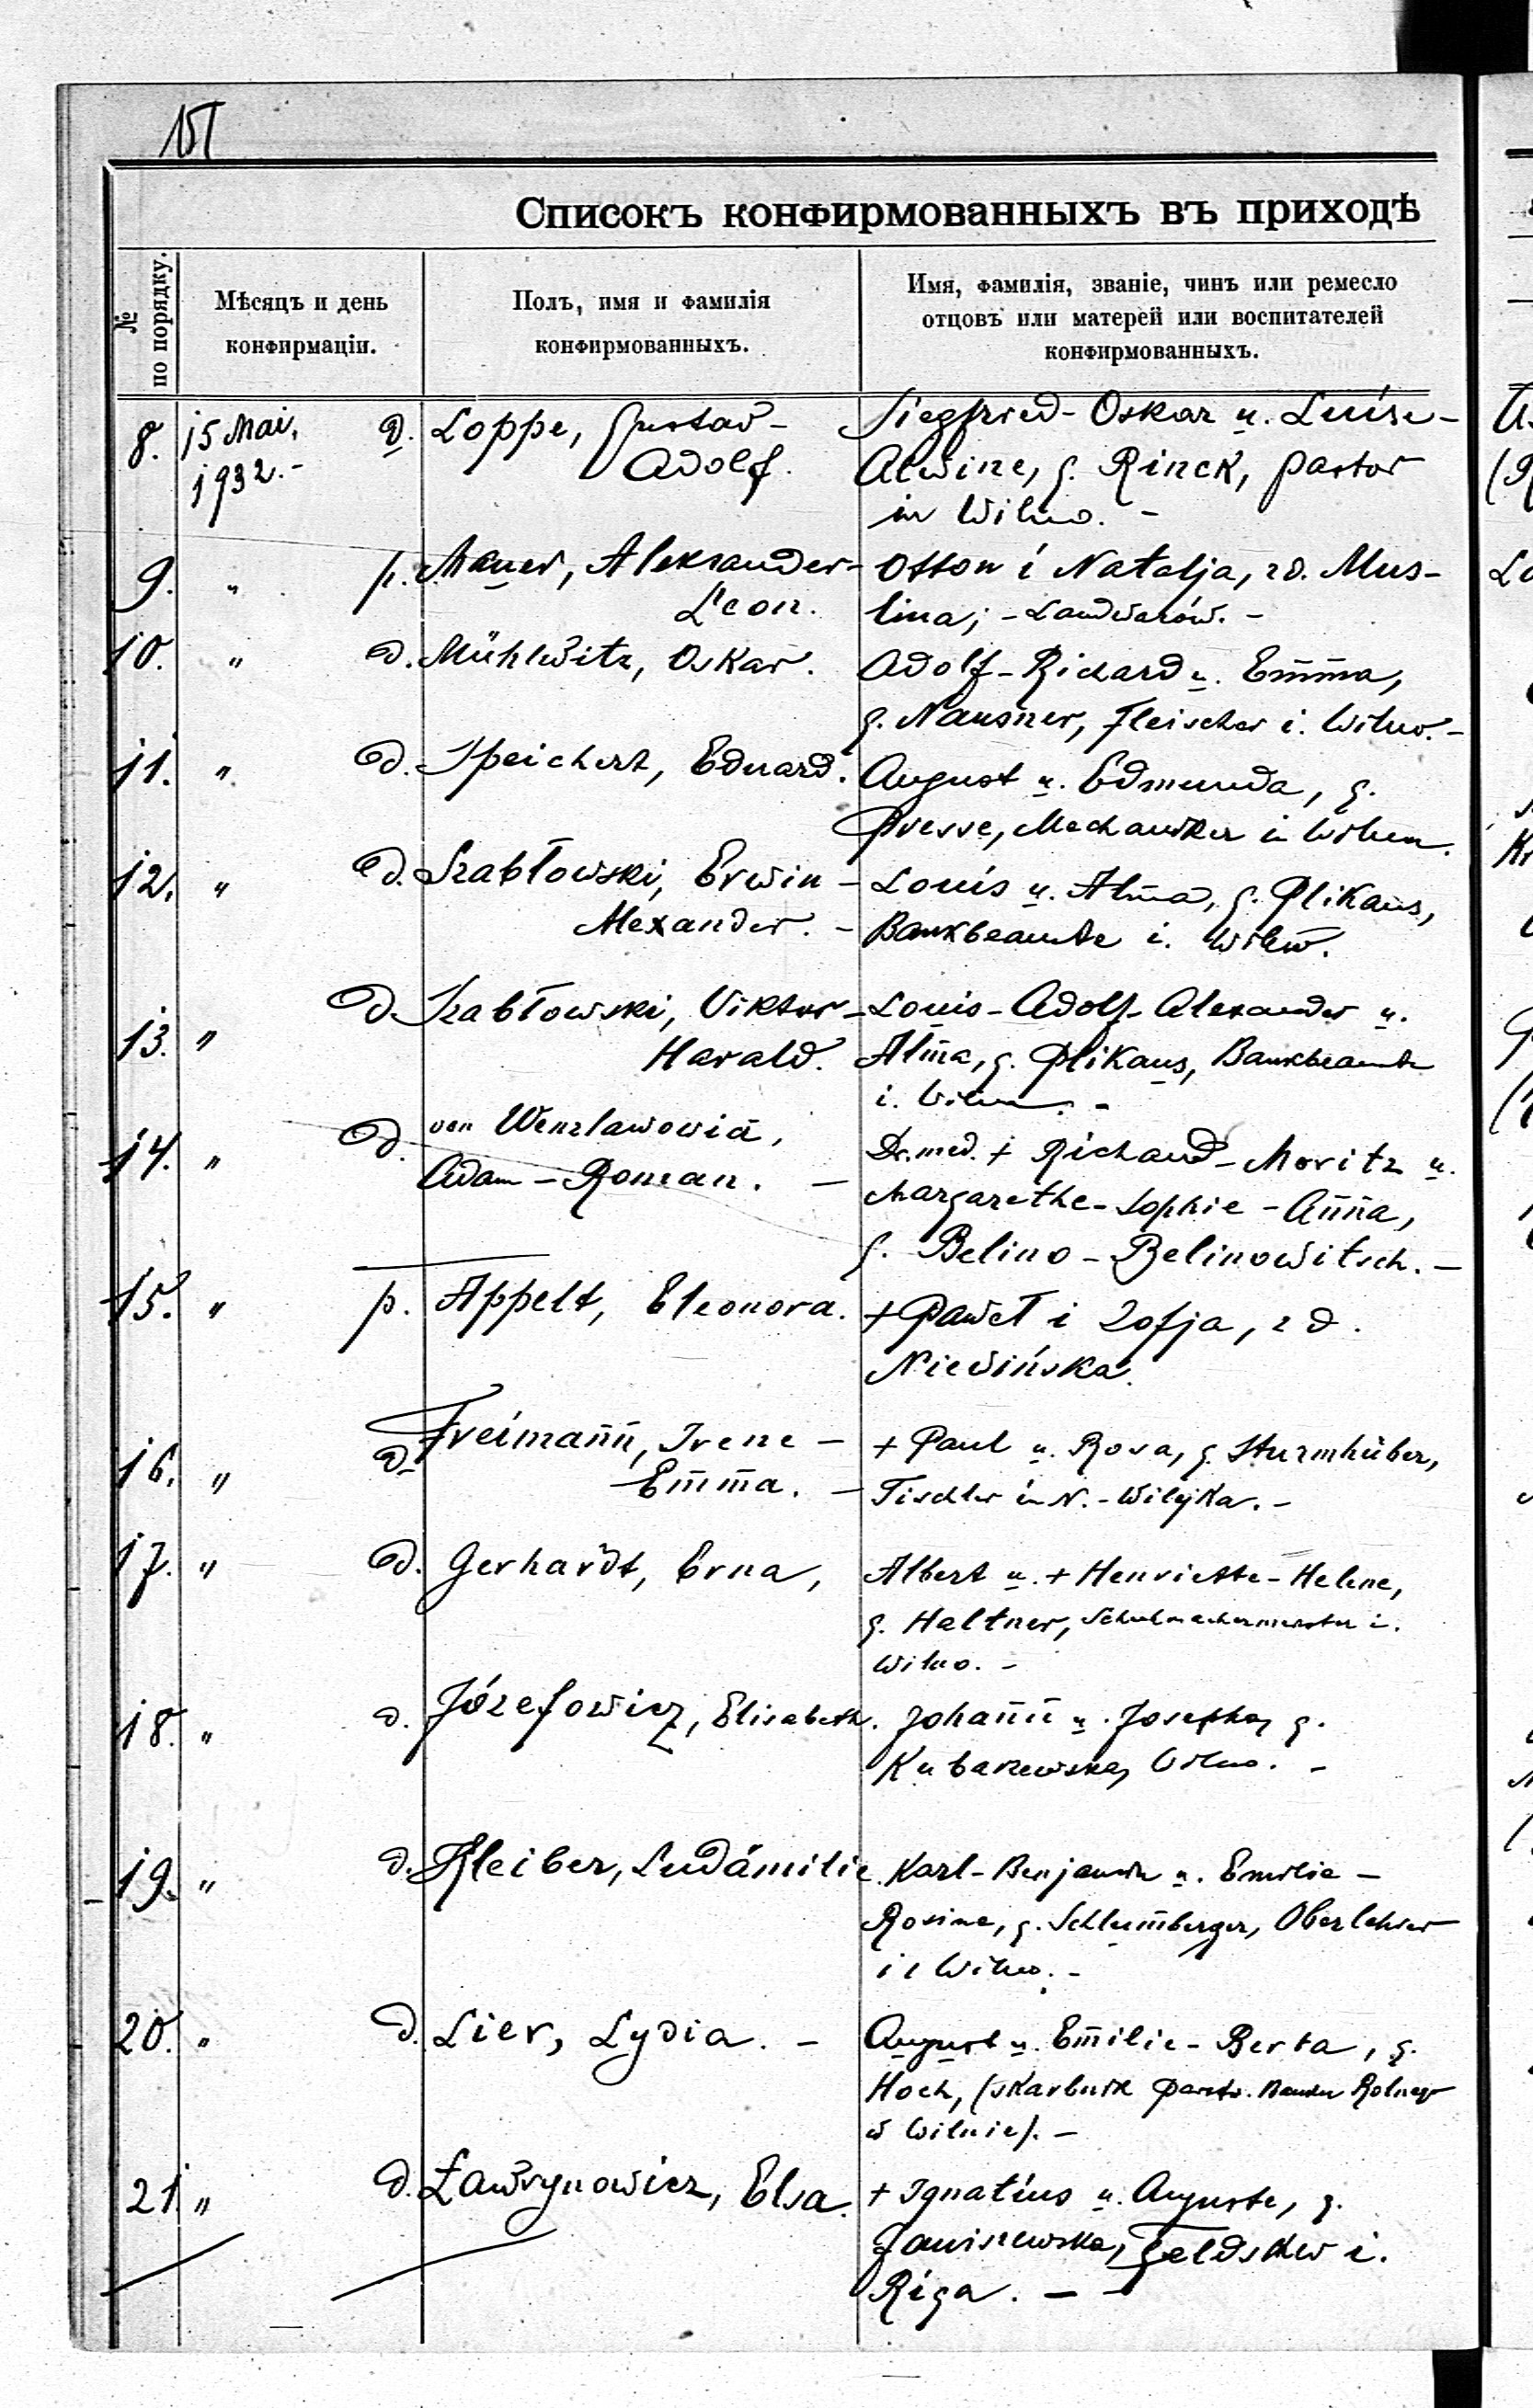 151
Списокъ конфирмованныхъ въ приходѣ
№ по порядку.
Мѣсяцъ и день
конфирмаціи.
Полъ, имя и фамилія
конфирмованныхъ.
Имя, фамилія, званіе, чинъ или ремесло
отцовъ или матерей или воспитателей
конфирмованныхъ.
8. 15 Mai, 1932.- d. Loppe, Gustav-
Adolf.
Siegfried-Oskar u. Luise-
Alwine, g. Rinck, Pastor
in Wilno. -
9. " p. Mauer, Aleksander-
Leon.
Otton i Natalja, zd. Mus-
lina; - Landwarów. -
10. " d. Mühlwitz, Oskar.
Adolf-Richard u. Em̄ma,
g. Nausner, Fleischer i. Wilno. -
11. " d. Speichert, Eduard.
August u. Edmunda, g.
Presse, Mechaniker in Wilna.
12. " d. Szabłowski, Erwin-
Alexander. -
Louis u. Alma, g. Plikaus,
Bankbeamte i. Wilno.
13. " d. Szabłowski, Viktor-
Harald.
Louis-Adolf-Alexander u.
Alma, g. Plikaus, Bankbeamte
i. Wilna. -
14. " d. von
Adam-Roman. -
Dr. med. + Richard-Moritz u.
Margarethe-Sophie-Anna,
g. Belino-Belinowitsch. -
15. " p. Appelt, Eleonora.
+ Paweł i Zofja, zd.
Niewińska.
16. " d. Freimann, Irene-
Emma. -
+ Paul u. Rosa, g. Sturmhüber,
Tischler in N.-Wilejka. -
17. " d. Gerhardt, Erna,
Albert u. + Henriette-Helene,
g. Heltner, Schuhmachermeister i.
Wilno. -
18. " d. Józefowicz, Elisabeth.
Johann u. Josepha, g.
Kubarzewska, Wilno. -
19. " d. Kleiber, Ludämilie.
Karl-Benjamin u. Emilie-
Rosine, g. Schlumberger, Oberlehrer
i. Wilno. -
20. " d. Lier, Lydia. -
August u. Emilie-Berta, g.
Hoch, (skarbnik Państw. Banku Rolnego
w Wilnie). -
21. " d. Ławrynowicz, Elsa.
+ Ignatius u. Auguste, g.
Janiszewska, Feldscher i.
Riga. -